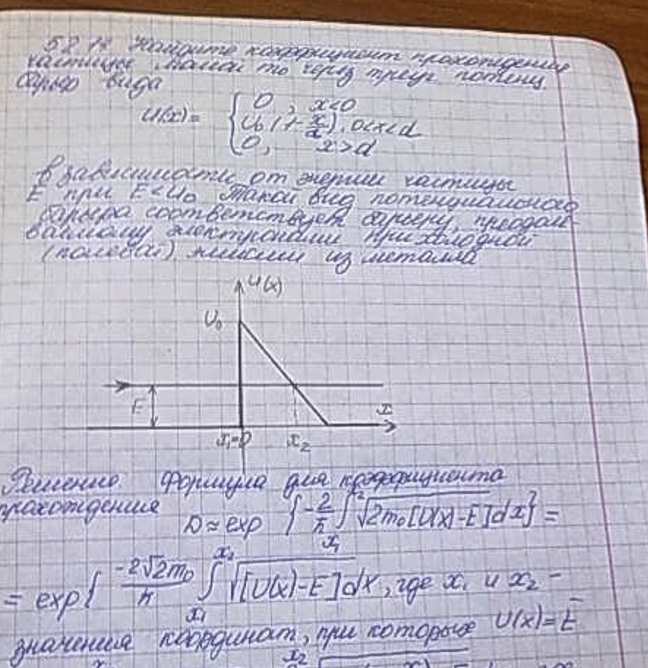 5.2.14. Найдите коэффициент прохождения
частицы массой m₀ через треуг. потенц.
барьер вида
U(x) = { 0, x<0
U₀(1-x/d), 0<x<d
0, x>d
в зависимости от энергии частицы
E при E<U₀. Такой вид потенциального
барьера соответствует барьеру, преодоле-
ваемому электронами при холодной
(полевой) эмиссии из металла
U(x)
U₀
E
x₁=0
x₂
x
Решение. Формула для коэффициента
прохождения D≈exp {-2/ħ ∫ₓ₁ˣ² √2m₀[U(x)-E]dx} =
= exp{ -2√2m₀/ħ ∫ₓ₁ˣ² √[U(x)-E]dx, где x₁ и x₂ -
значения координат, при которых U(x)=E